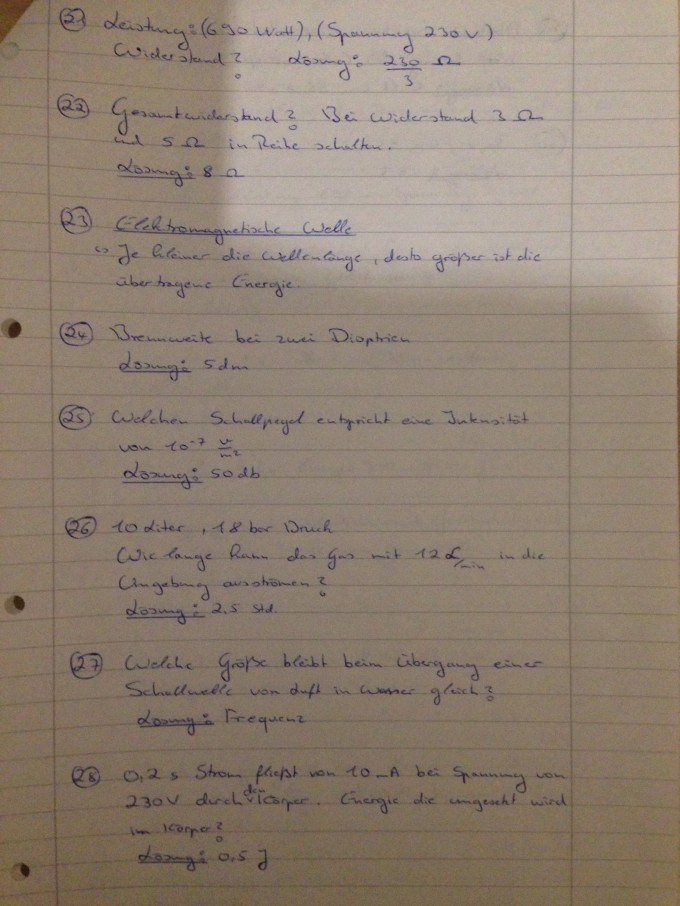 21 Leistung: (690 Watt), (Spannung 230 V)
Widerstand? Lösung: 230/3 Ω
22 Gesamtwiderstand? Bei Widerstand 3 Ω
und 5 Ω in Reihe schalten.
Lösung: 8 Ω
23 Elektromagnetische Welle
↳ Je kleiner die Wellenlänge, desto größer ist die
übertragene Energie.
24 Brennweite bei zwei Dioptrien
Lösung: 5 dm
25 Welchen Schallpegel entspricht eine Intensität
von 10⁻⁷ /m²
Lösung: 50 db
26 10 Liter, 18 bar Druck
Wie lange kann das Gas mit 12 L/min in die
Umgebung ausströmen?
Lösung: 2,5 Std.
27 Welche Größe bleibt beim Übergang einer
Schallwelle von Luft in Wasser gleich?
Lösung: Frequenz
28 0,2 s Strom fließt von 10 mA bei Spannung von
230 V durch den Körper. Energie die umgesetzt wird
im Körper?
Lösung: 0,5 J